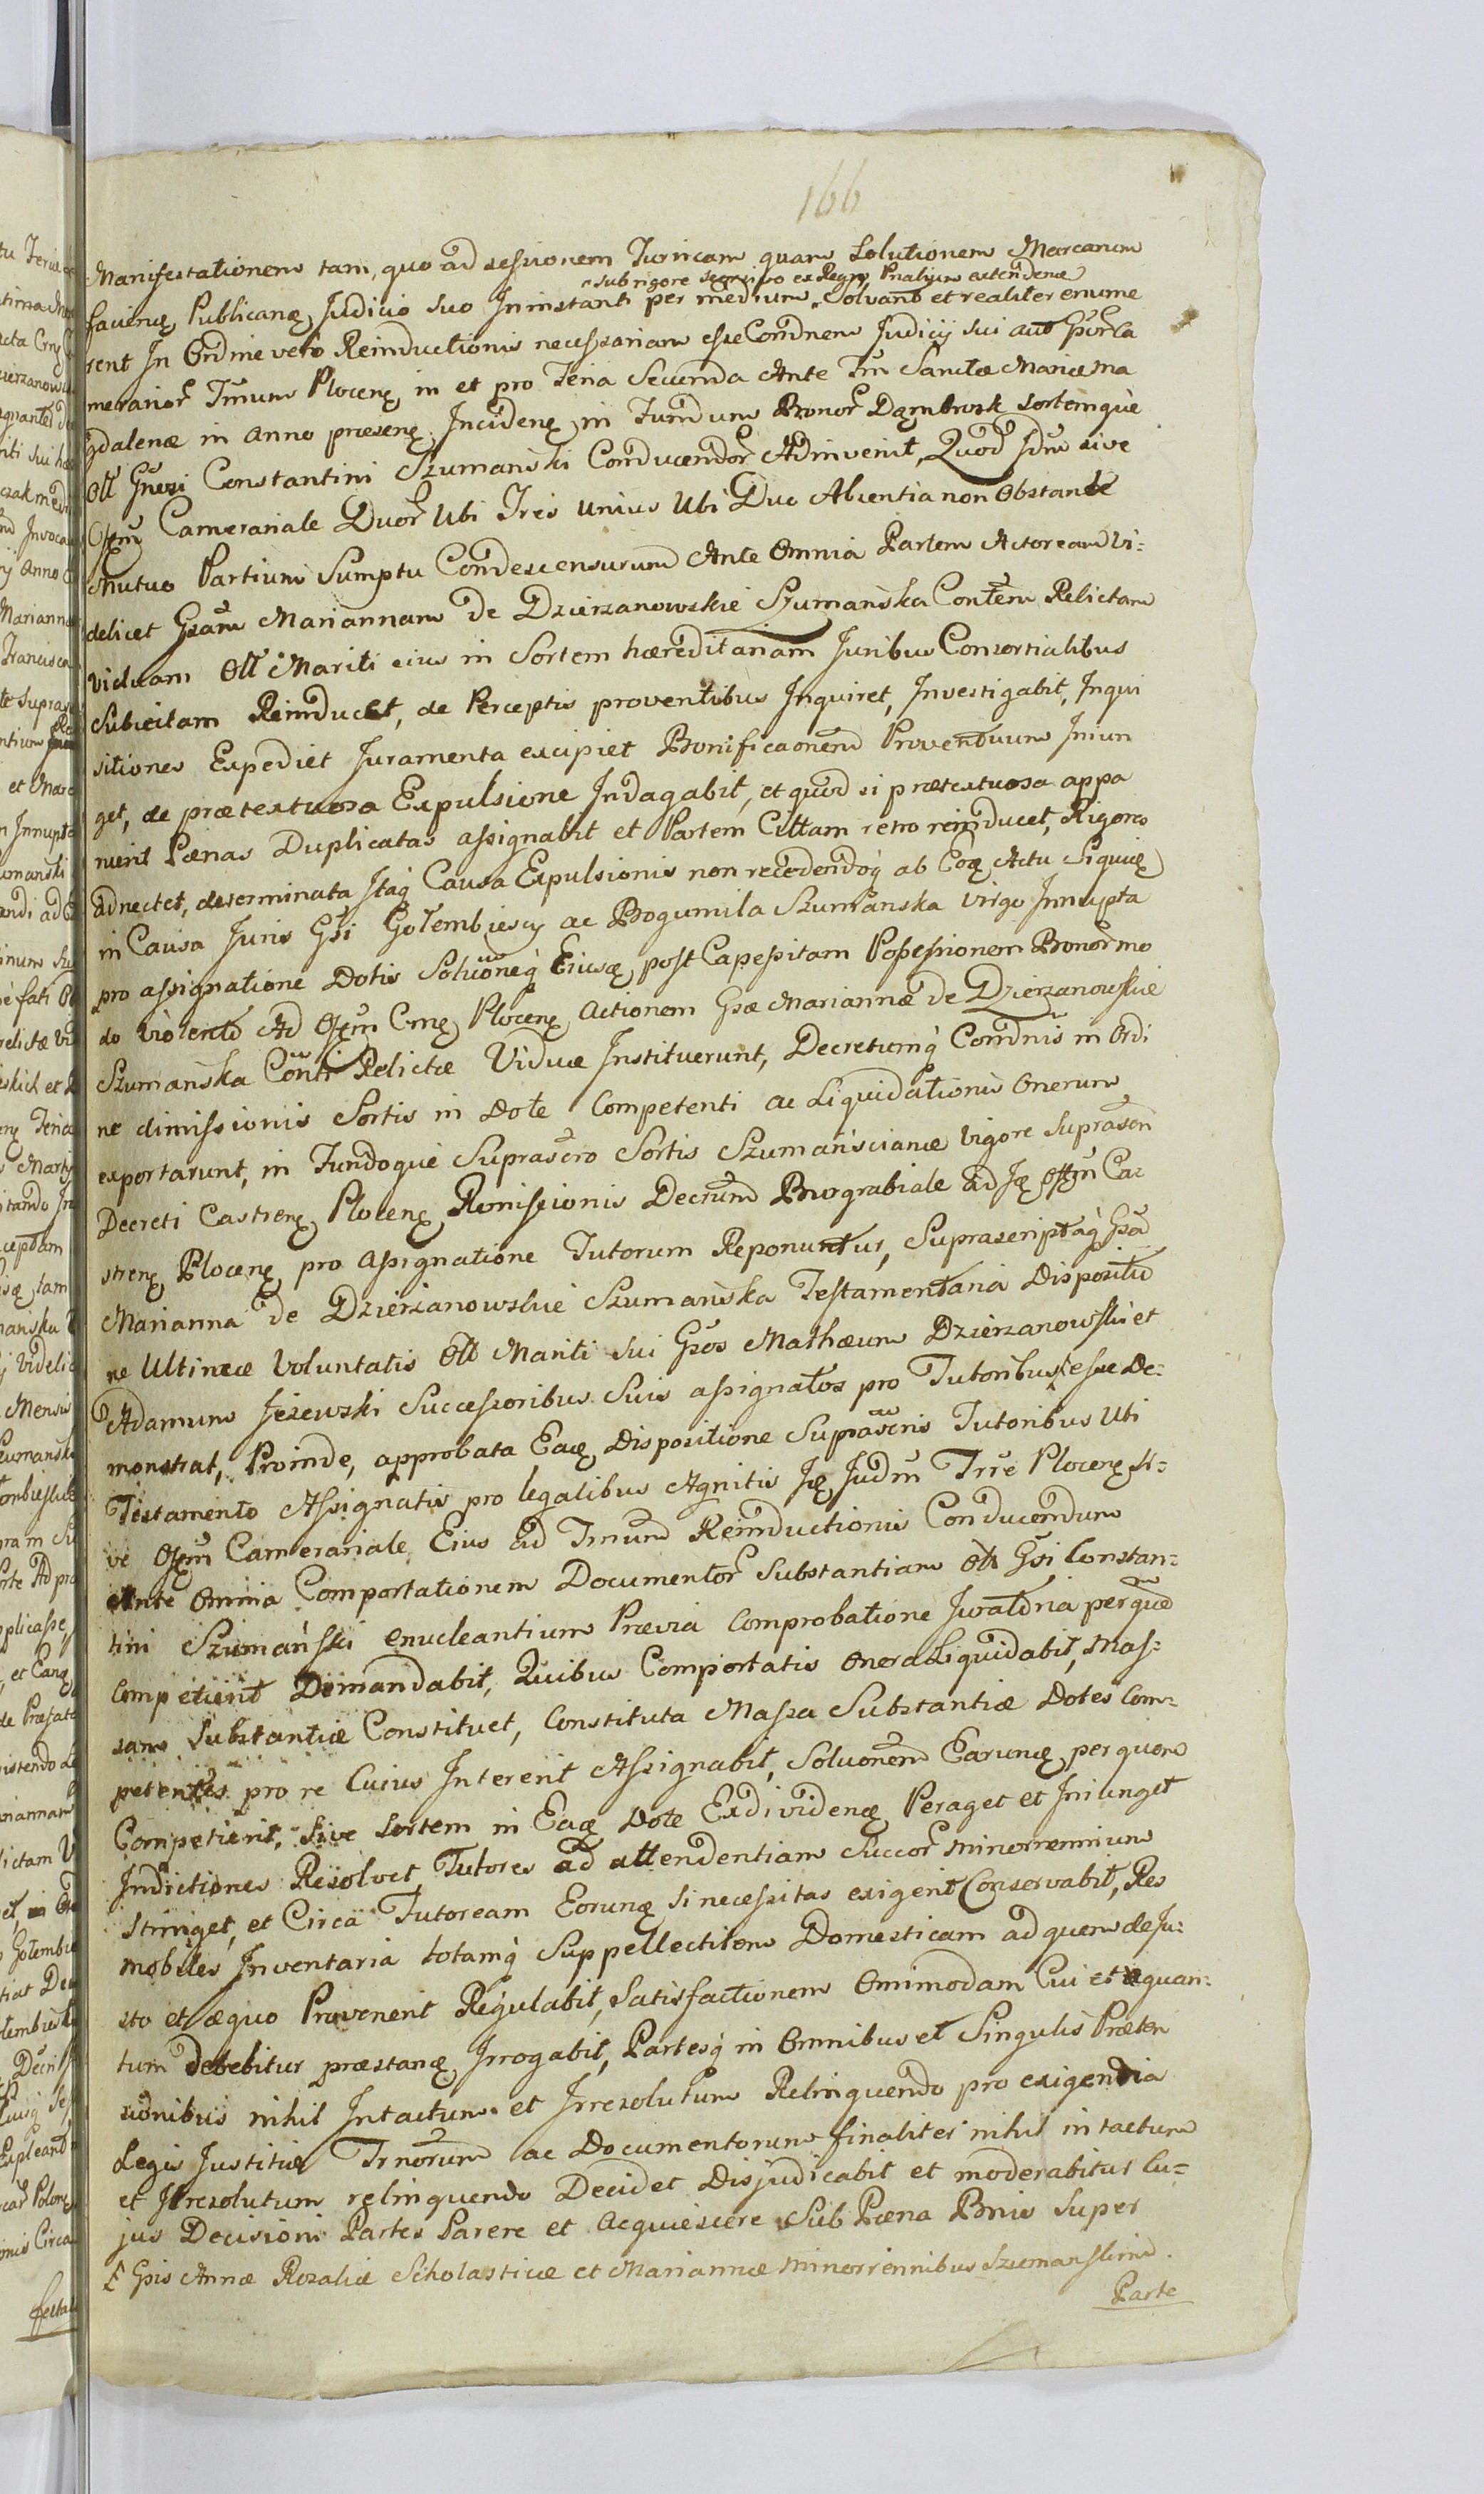 166
Manifestationem tam, quo ad sessionem Turricam quam Solutionem Marcarum
sub rigore ex Regno, attendenae
favienę Publicanę, Judicio suo In instanti per medium Solvant et realiter enume
rent In Ordine vero Reinductionis necessariam esse Condnem Judicij sui aut
merarior Tmum Plocenę in et pro Feria Secunda Ante Fm Sanctæ Mariæ Ma
gdalenæ in anno præsenę Incidenę in Fundum Bonor Dąmbrosk sortemque
Oll Gnrsi Constantini Szumański Conducendor Adinvenit, Quod Jdm sive
Offm Camerariale Duor Ubi Tres unius Ubi Duo Absentia non Obstante
Mutuo Partium Sumptu Condescensurum Ante Omnia Partem Actoream Vi=
delicet Gsam Mariannam de Dzierzanowskie Szumańska Contem Relictam
viduam Oll Mariti eius in Sortem hæreditariam Juribus Consortialibus
Subiectam Reinducet, de Perceptis proventibus Inquiret, Investigabit, Inqui
sitiones Expediet Juramenta excipiet Bonificaonem Proventuum Iniun
get, de prætextuosa Expulsione Indagabit, et quod si prætextuosa appa
ruerit Pænas Duplicatas assignabit et Partem Cittam retro reinducet, Rigores
adnectet, determinata Itaq Causa Expulsionis non recedendoq ab Eoę Actu Siquię
in Causa Juris Gsi Gołembiescy ac Bogumila Szumańska virgo Innupta
pro assignatione Dotis Soluõneq Eiusę, post Capessitam Possessionem Bonor mo
do violento Ad Offm Cmę Plocenę Actionem Gsæ Mariannæ de Dzierzanowskie
Szumańska Contr Relictæ Viduæ Instituerunt, Decretumq Comdnis in Ordi
ne dimissionis Sortis in Dote Competenti ac Liquidationis Onerum
exportarunt, in Fundoque Suprascro Sortis Szumańscianæ vigore suprascri
Decreti Castrenę Plocenę Remissionis Decrum Burgrabiale ad Ję Offm Ca=
strenę Plocenę pro assignatione Tutorum Reponuntur, Suprascriptaq Gsa
Marianna de Dzierzanowskie Szumańska Testamentaria Dispositio
ne Ultimæ Voluntatis Oll Mariti sui Gsos Mathæum Dzierzanowski et
Adamum Jezewski Successoribus Suis assignatos pro Tutoribus esse De=
monstrat, Proinde, approbata Eaę Dispositione Suprascris Tutoribus Uti
Testamento Assignatis pro legalibus Agnitis Ję Judm Trre Plocenę si=
ve Offm Camerariale Eius ad Tmum Reinductionis Conducendum
Ante Omnia Comportationem Documentor Substantiam Oll Gsi Constan=
tini Szumański enucleantium Prævia Comprobatione Juratoria per quem
competierit Demandabit, Quibus Comportatis Onera Liquidabit, Mas=
sam Substantiæ Constituet, Constituta Massa Substantiæ Dotes Com=
petentes pro re Cuius Intererit Assignabit, Soluonem Earumę per quem
Competierit, sive Sortem in Eaę Dote Exdividenę Peraget et Iniunget
Indictiones Resolvet, Tutores ad attendentiam Succor minorennium
Stringet, et Circa Tutoream Eorumę Si necessitas exigerit Conservabit, Res
mobiles Inventaria totamq Suppellectitem Domesticam ad quem de Ju=
sto et æquo Provenerit Regulabit, Satisfactionem Omnimodam Cui et quan=
tum debebitur præstanę Irrogabit, Partesq in Omnibus et Singulis Præten
sionibus nihil Intactum et Irresolutum Relinquendo pro exigentia
Legis Justitiæ Trnorum ac Documentorum finaliter nihil intactum
et Irresolutum relinquendo Decidet Disjudicabit et moderabitur Cu=
jus Decisioni Partes Parere et Acquiescere Sub Pæna Bnis super
Gsis Annæ Rozaliæ Scholasticæ et Mariannæ Minorrennibus
Parte